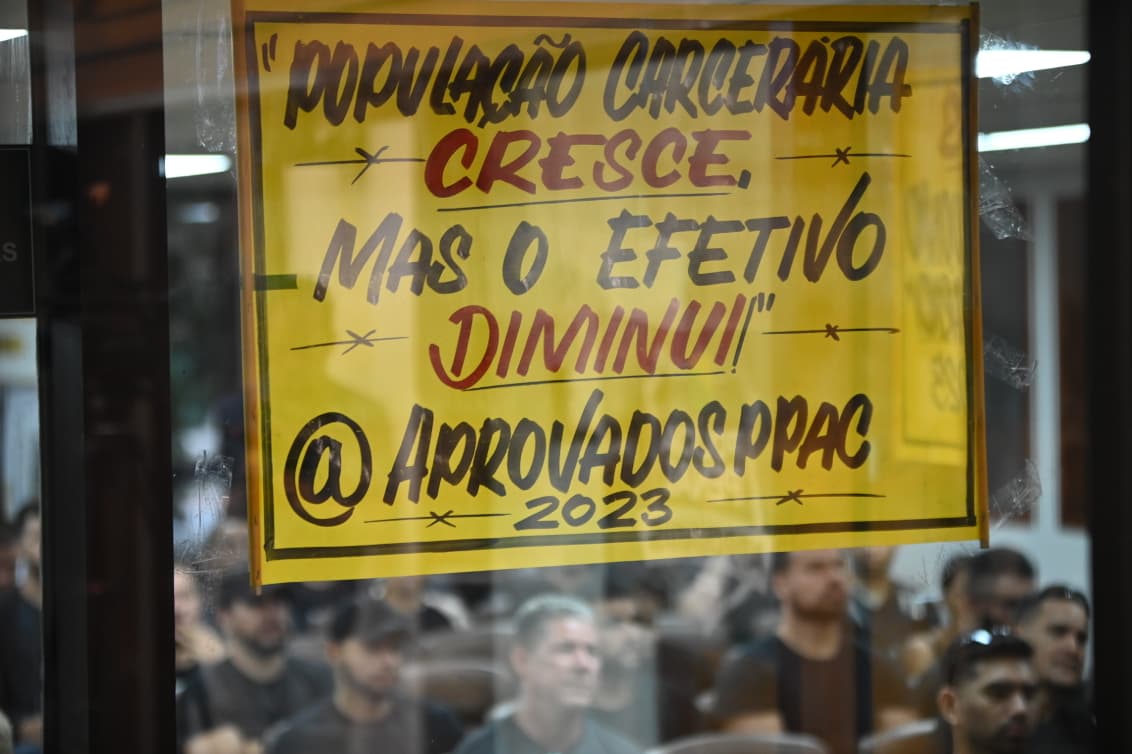 "POPULAÇÃO CARCERÁRIA
CRESCE,
MAS O EFETIVO
DIMINUI!"
@APROVADOSPPAC
2023